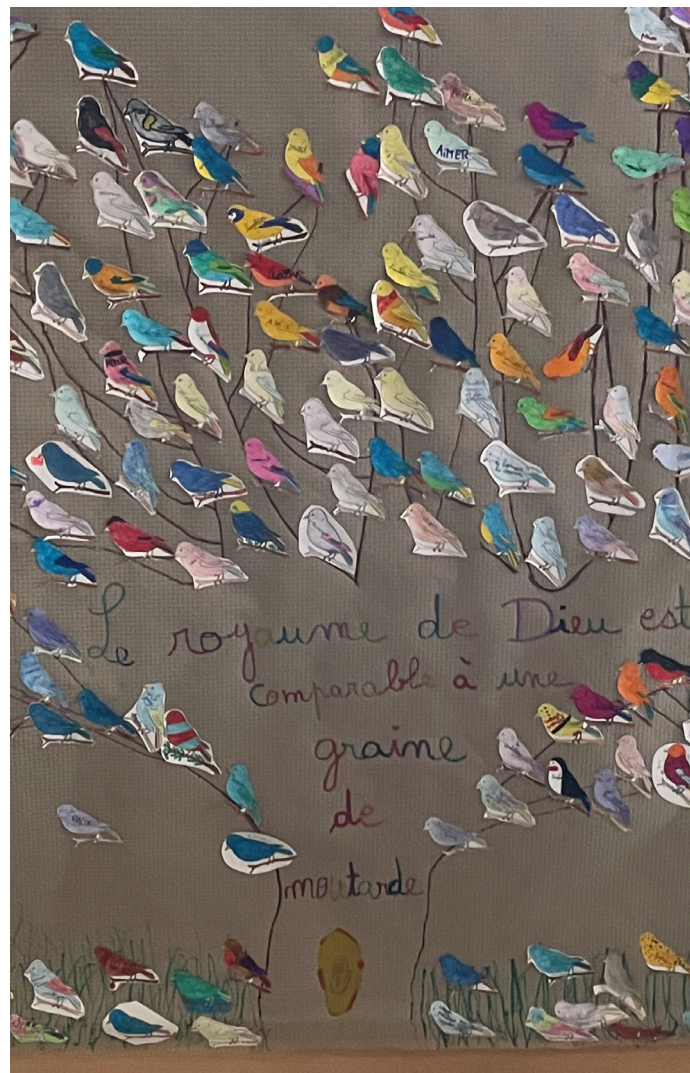 AIMER
Le royaume de Dieu est
comparable à une
graine
de
moutarde